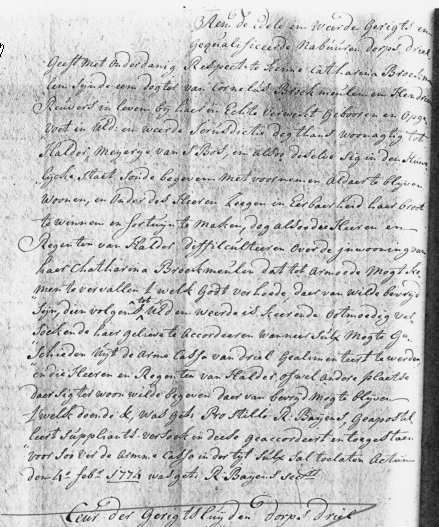 Aen de Edele en weerde Gerigts en
Gequalificeerde Nabuuren dorps driel
Geeft met onderdanig Respect te kenne Catharina Broekmeu
len zijnde een dogter van Cornelis Broekmeulen en Hendrien
Reuvers in leven bij haer en Echte verwekt Geboren en Opge
voet in UEd. en weerde Jurisdictie dog thans woonagtig tot
Halder, Meijerije van s Bos, en alsoo deselve sig in den Huwe
lijcke Staet soude begeven met voornemen aldaer te blijven
woonen, en onder des Heeren Zeegen in Eerbaerheid haer broot
te winnen en fortuijn te maken, dog alsoo de Heeren en
Regenten van Halder difficulteeren over de inwooning van
haer Chatharena Broekmeulen dat tot armoede mogt ko
men te vervallen t welk Godt verhoede, daer van wilde bevrijt
Zijn, den volgen tot UEd en weerde is keerende ootmoedig ver
soekende haer gelieve te accordeeren wanneer sulx mogte Ge
schieden uijt de arme Cassa van driel Gealimenteert te werden
en die Heeren en Regenten van Halder, ofwel andere plaetse
daer sig ter woon wilde begeven daer van bevrijd mogte blijven
t welk doende &. was get. Per Stille R. Bayens, Geapostel
leert Suppliants versoek in deese geaccordeert en toegestaen
voor soo ver de Armme Cassa in der tijt sulx sal toelaten Actum
den 4e feb. 1774 was get. R Bayens secrt.
Ceur der Gerigtsluijden dorps driel